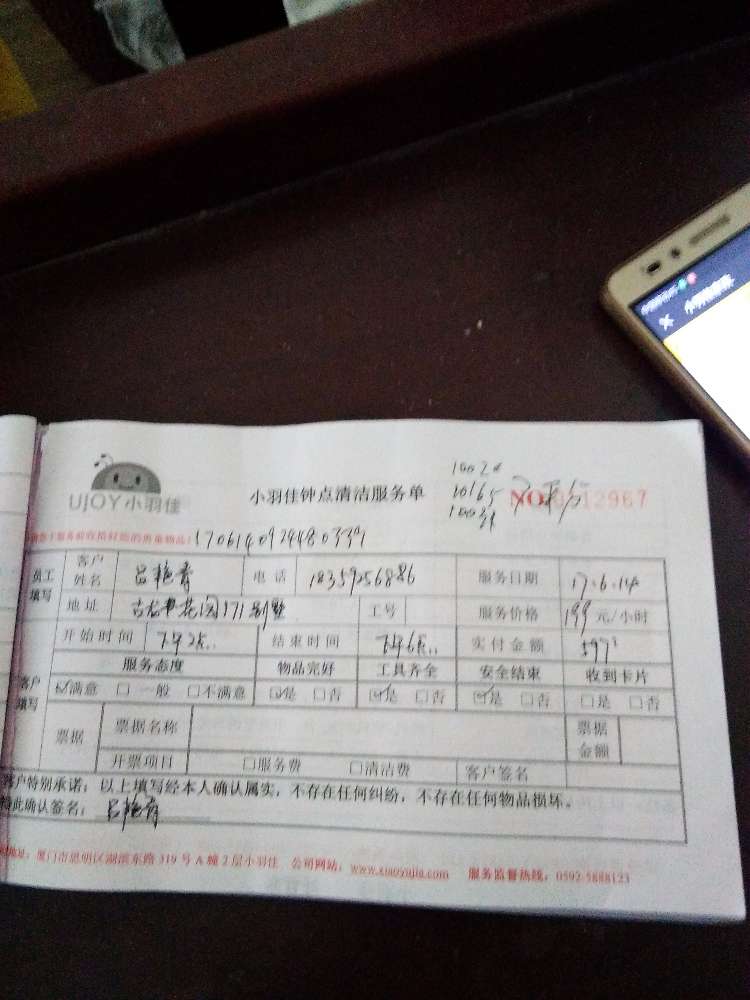 UJOY小羽佳
小羽佳钟点清洁服务单
10165
NO 12967
170614092448033
员工填写
客户姓名 吕艳青 电话 18359256886 服务日期 17.6.14
地址 花园171别墅 工号 服务价格 199元/小时
开始时间 下午2点 结束时间 下午6点 实付金额 597
服务态度 物品完好 工具齐全 安全结束 收到卡片
客户填写
☑满意 □一般 □不满意 ☑是 □否 ☑是 □否 ☑是 □否 □是 □否
票据 票据名称 票据金额
开票项目 □服务费 □清洁费 客户签名
客户特别承诺：以上填写经本人确认属实，不存在任何纠纷，不存在任何物品损坏。
特此确认签名：吕艳青
地址：厦门市思明区湖滨东路319号A幢2层小羽佳 公司网站：www.xiaoyujia.com 服务监督热线：0592-5888123